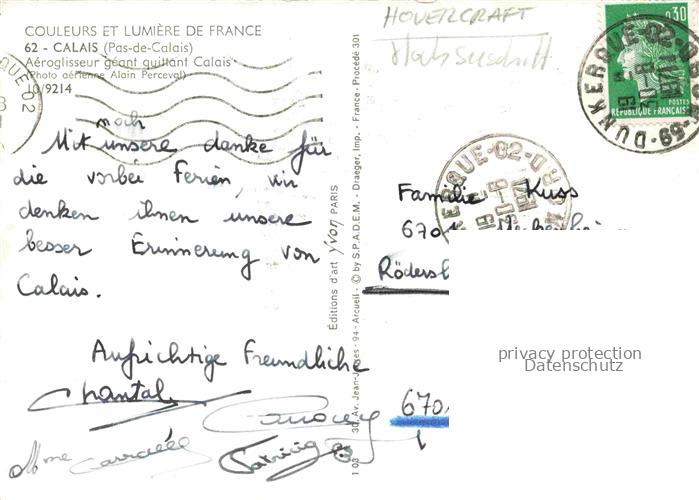 COULEURS ET LUMIÈRE DE FRANCE
62 - CALAIS (Pas-de-Calais)
Aéroglisseur géant quittant Calais
(Photo aérienne Alain Perceval)
10/9214
HOVERCRAFT
0,30
POSTES
REPUBLIQUE FRANÇAISE
DUNKERQUE-02
59
noch
Mit unsere danke für
die vorbei Ferien, wir
denken ihnen unsere
besser Erinnerung von
Calais.
Aufrichtige Freundliche
Chantal
Mme
Patricia
Editions d'art yvon PARIS
1 03 30, Av. Jean-Jaurès - 94 - Arcueil - © by S.P.A.D.E.M. - Draeger, Imp. - France - Procédé 301
Familie Kuss
6701
Röders
670
privacy protection
Datenschutz